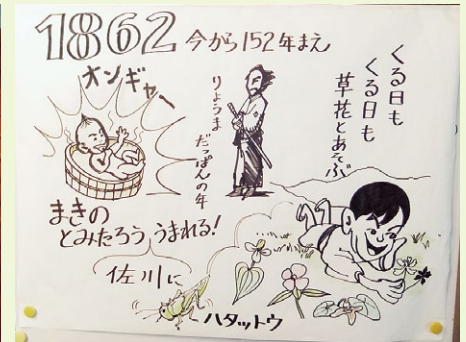 1862 今から152年まえ
オンギャー
りょうま
だっぱんの年
くる日も
くる日も
草花とあそぶ
まきの
とみたろう うまれる!
佐川に
ハタットウ